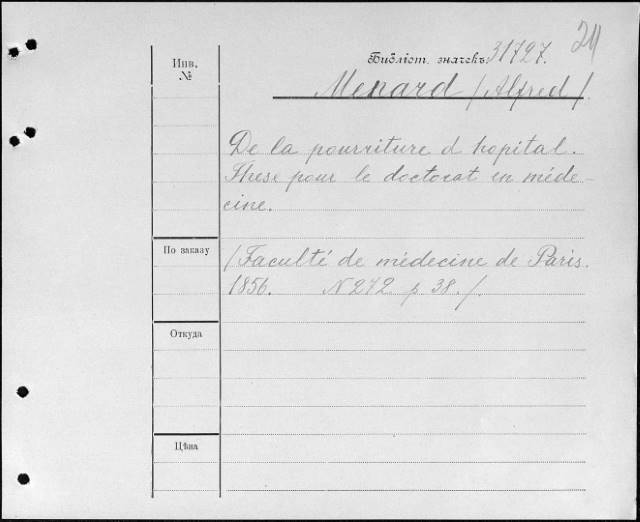 Инв.
№
Библіот. значекъ 31727.
Menard /Alfred/.
De la pourriture d hopital.
These pour le doctorat en méde-
cine.
По заказу
/Faculté de médecine de Paris.
1856. N 272 p 38./.
Откуда
Цѣна